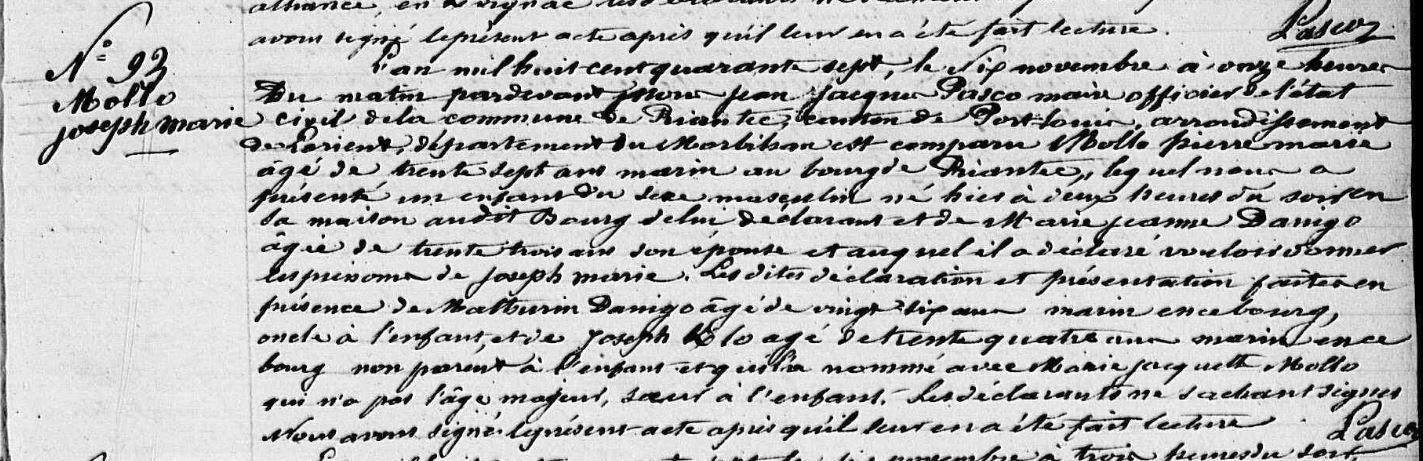 alliance, en
avons signé le présent acte après qu'il leur en a été fait lecture. Pasco
N° 93
Mollo
Joseph Marie
L'an mil huit cent quarante sept, le Six novembre à onze heures
Du matin pardevant nous Jean Jacques Pasco maire officier de l'état
civil de la commune de Riantec, canton de Port-Louis, arrondissement
de Lorient, département du Morbihan est comparu Mollo pierre marie
âgé de trente sept ans marin au bourg de Riantec, lequel nous a
présenté un enfant du sexe masculin né hier à deux heures du soir en
sa maison audit Bourg de lui déclarant et de Marie jeanne Danigo
âgée de trente trois ans son épouse et auquel il a déclaré vouloir donner
les prenoms de Joseph marie. Les dites déclaration et présentation faites en
présence de Mathurin Danigo âgé de vingt six ans marin en ce bourg,
oncle à l'enfant, et de Joseph agé de trente quatre ans marin en ce
bourg non parent à l'enfant et qui l'a nommé avec Marie jacquette Mollo
qui n'a pas l'âge majeur, sœur à l'enfant. Les déclarants ne sachant signer
Nous avons signé le présent acte après qu'il leur en a été fait lecture Pasco
novembre à trois heures du soir